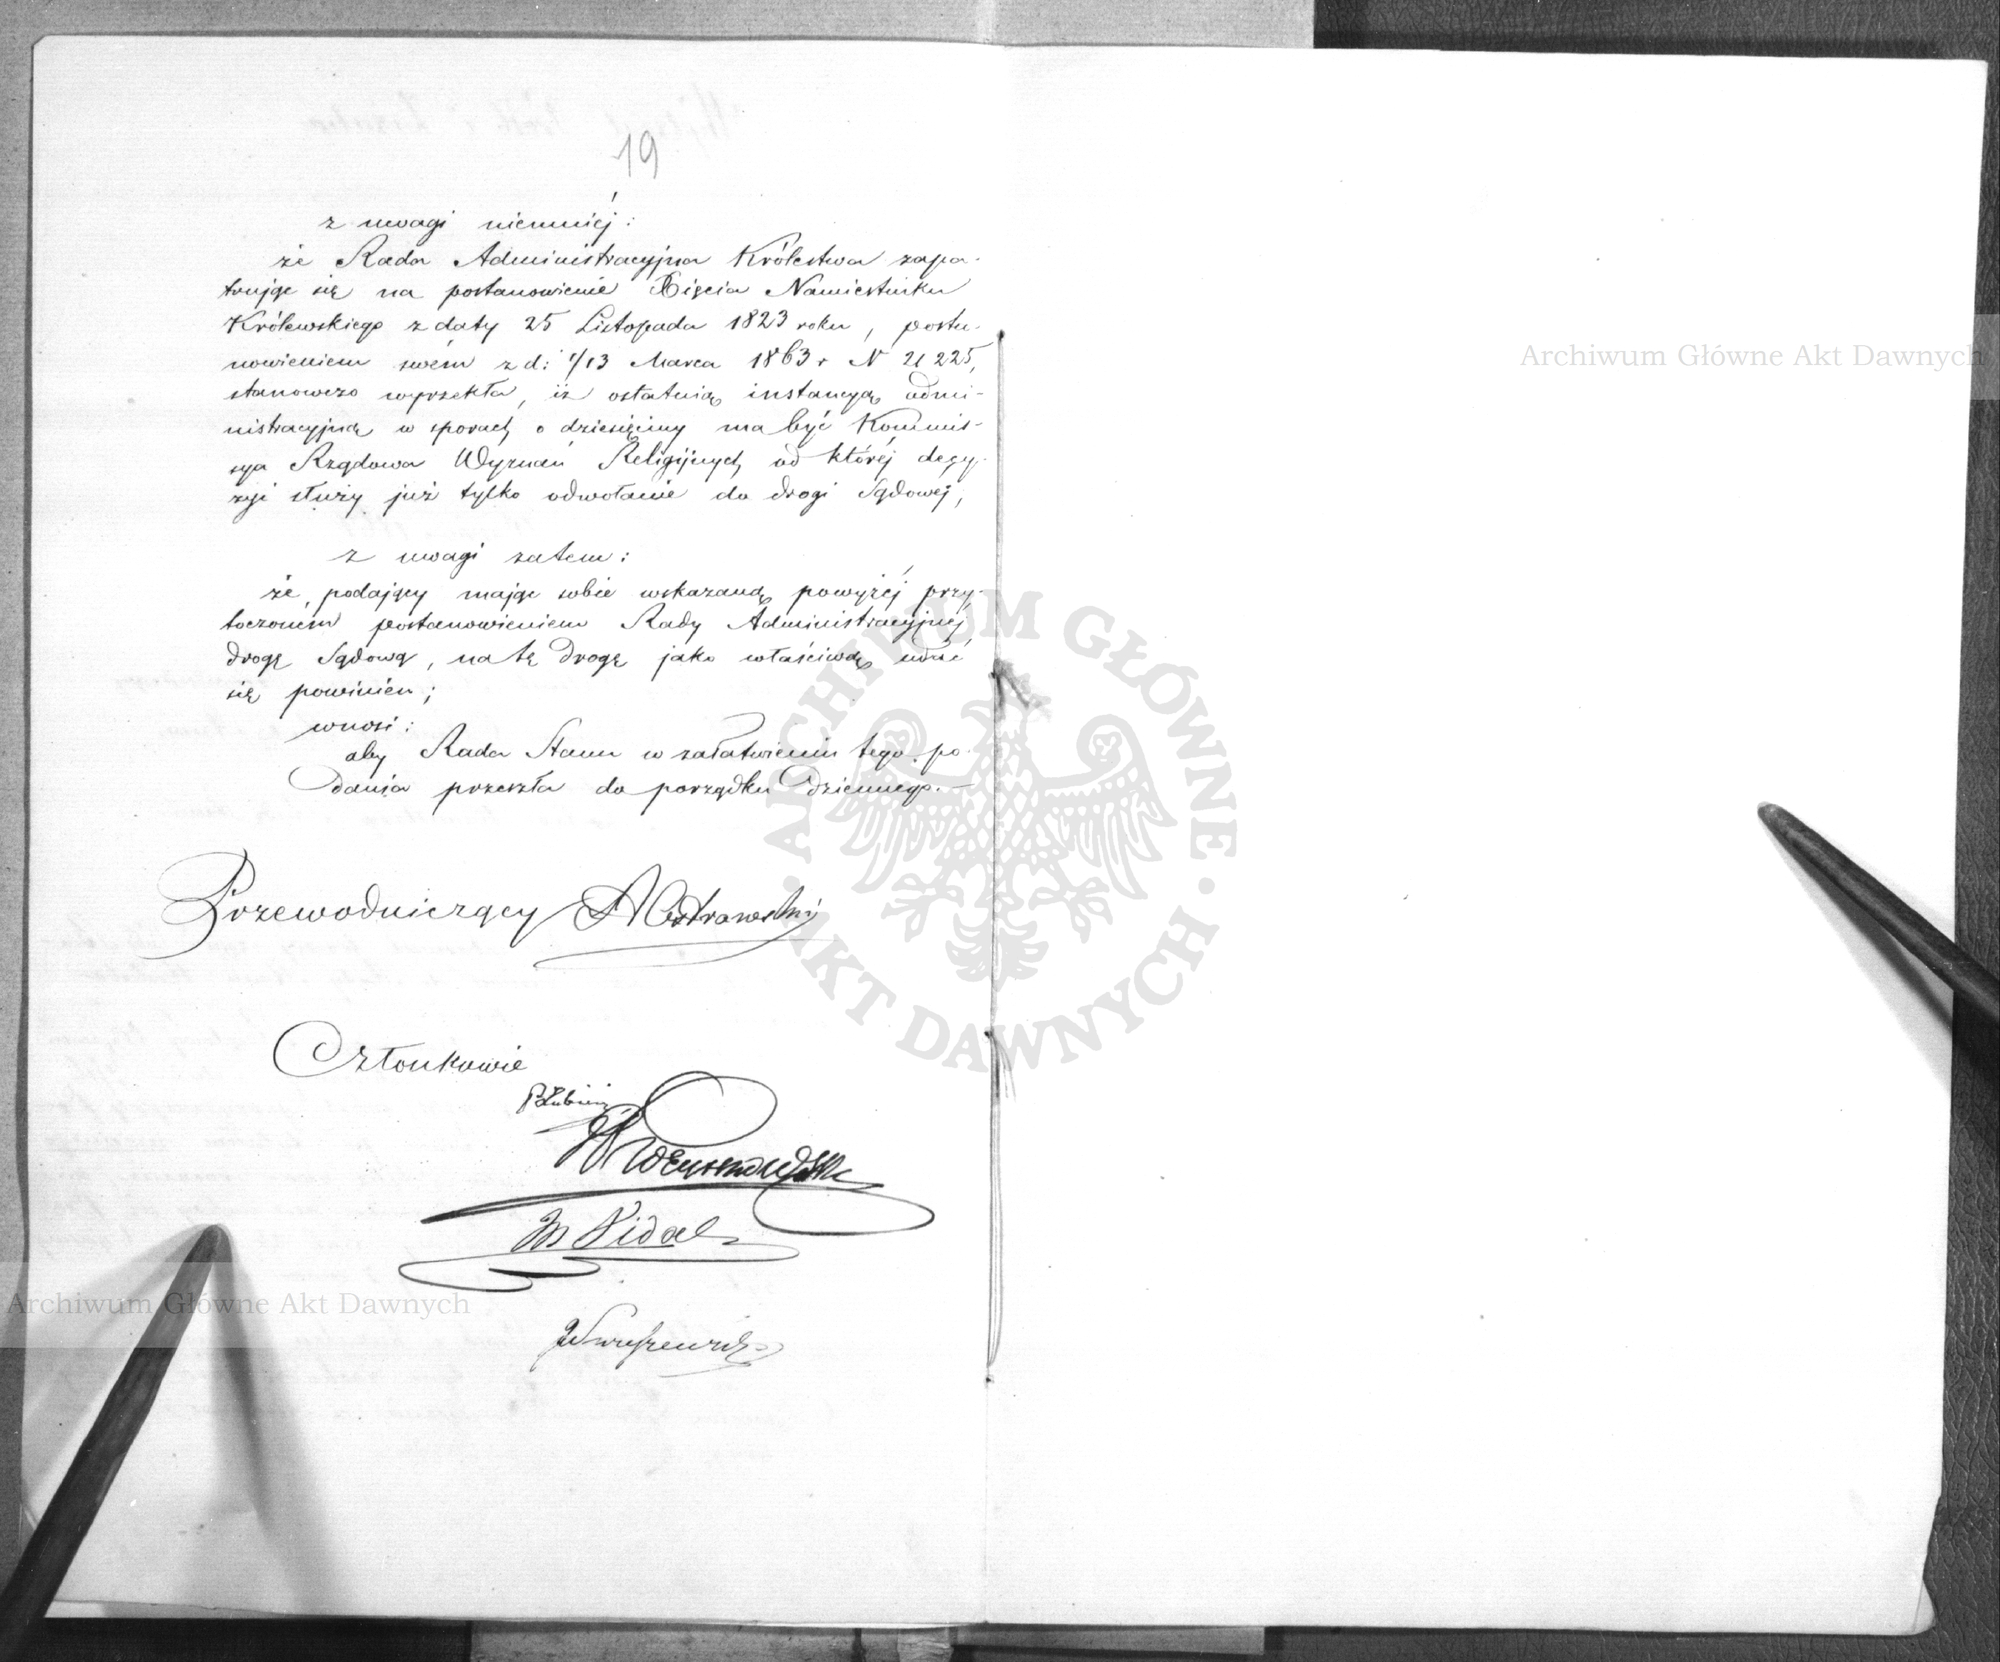 19
z uwagi niemniéj:
że Rada Administracyjna Królestwa zapa-
trując się na postanowienie Xięcia Namiestnika
Królewskiego z daty 25 Listopada 1823 roku, posta-
nowieniem swém z d: 1/13 Marca 1863 r N 21225,
stanowczo wyrzekła, iż ostatnią instancyą admi-
nistracyjną w sporach o dziesięciny ma być Kommis-
sya Rządowa Wyznań Religijnych, od któréj decy-
zyi służy już tylko odwołanie do drogi Sądowej,
z uwagi zatem:
że podający mając sobie wskazaną powyżéj przy-
toczoném postanowieniem Rady Administracyjnéj
drogę Sądową, na tę drogę jako właściwą udać
się powinien;
wnosi:
aby Rada Stanu w załatwieniu tego po-
dania przeszła do porządku dziennego.—
Przewodniczący A Ostrowski
Członkowie
Vidal
Archiwum Główne Akt Dawnych
Archiwum Główne Akt Dawnych
ARCHIWUM GŁÓWNE AKT DAWNYCH